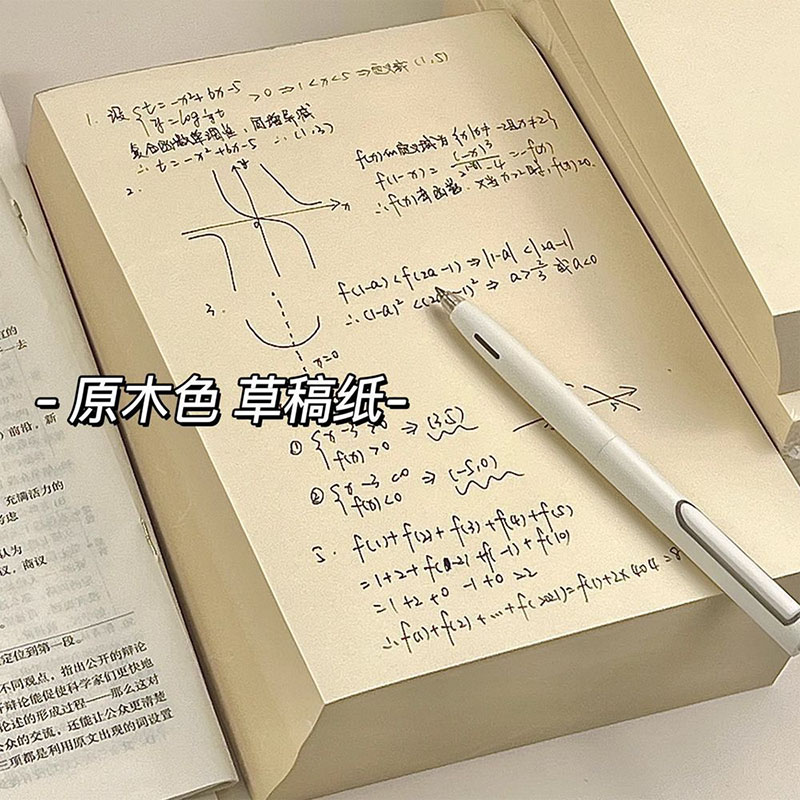 1. 设 {t=-x²+6x-5 >0 ⇒ 1<x<5 ⇒ 定义域 (1,5)
y=log½t
复合函数单调性,同增异减
∴ t=-x²+6x-5 ∴ (1,3)
2.
y
x
0
f(x)的定义域为 {x|x≠-2且x≠2}
f(-x)=(-x)³/ -4 = -f(x)
∴ f(x)奇函数. 当x>2时, f(x)>0.
3.
f(1-a)<f(2a-1) ⇒ |1-a|<|2a-1|
∴ (1-a)²<(2a-1)² ⇒ a>2/3 或 a<0
x=0
- 原木色 草稿纸-
① {x-3>0 ⇒ (3,5)
f(x)>0
② {x-3<0 ⇒ (-5,0)
f(x)<0
5. f(1)+f(2)+f(3)+f(4)+f(5)
=1+2+f(-2)+f(-1)+f(0)
=1+2+0-1+0=2
∴ f(1)+f(2)+…+f(2021)=f(1)+2×404=8
一去
前沿,新
充满活力的
考虑
认为
议,商议
定位到第一段。
不同观点,指出公开的辩论
辩论能促使科学家们更快地
论述的形成过程——那么这对
公众的交流,还能让公众更清楚
三项都是利用原文出现的词设置